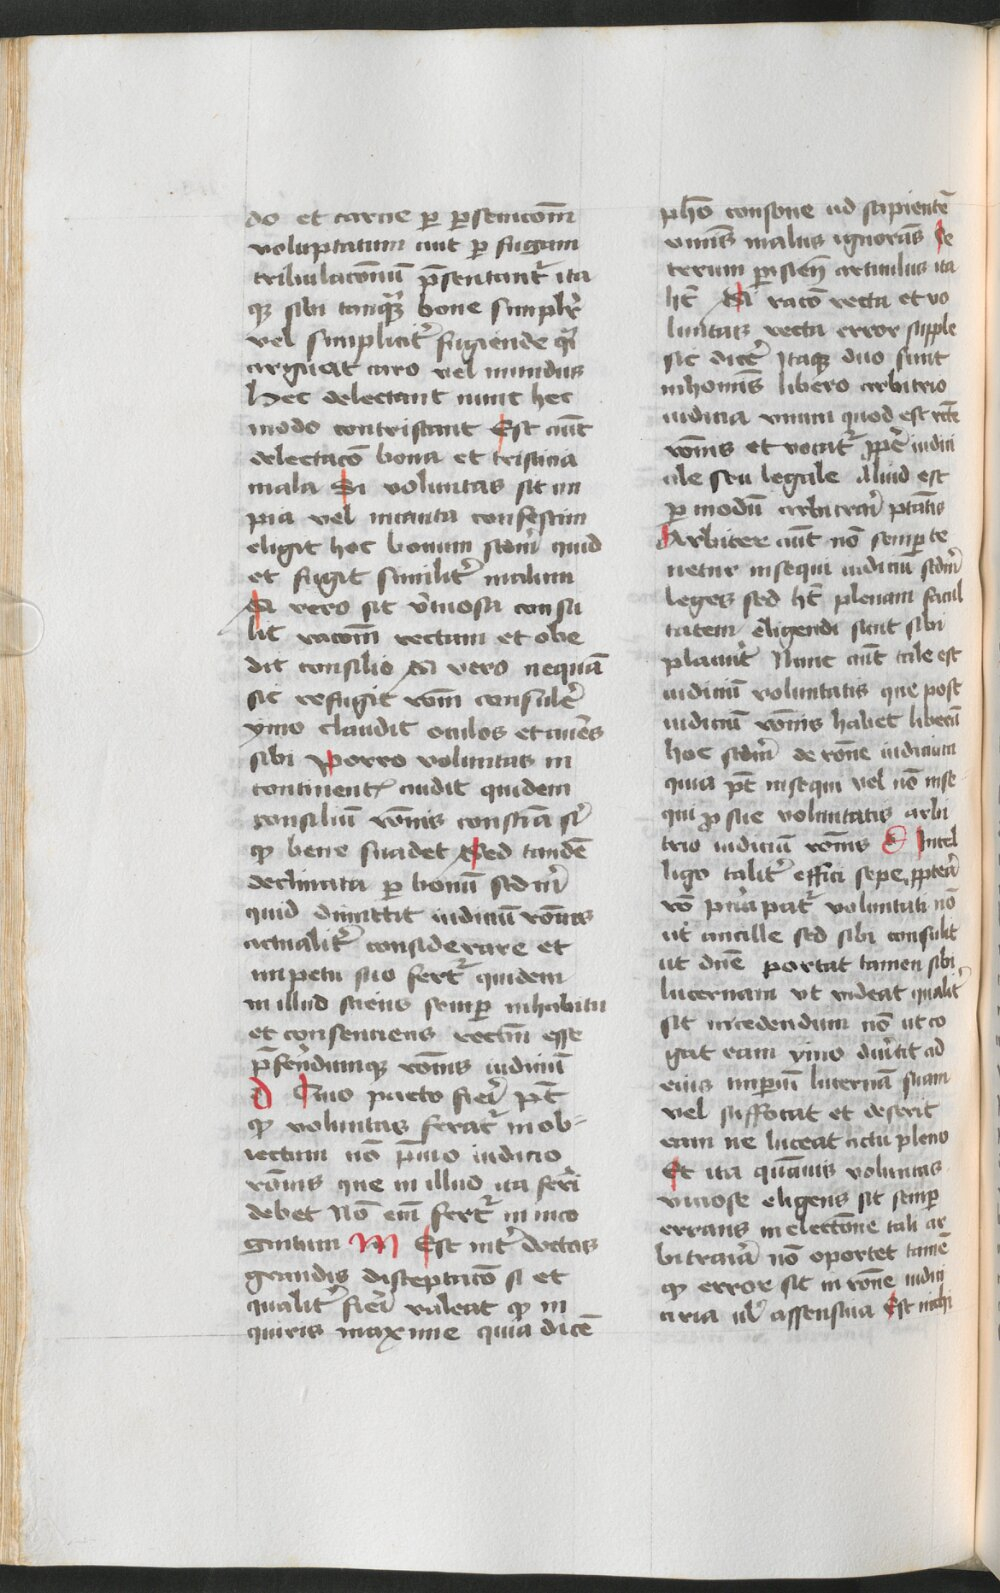 do et carne per persenicom̄
voluptatum aut per fugam
tribulaconū p̄sentant᷑ ita
qꝫ sibi tanqꝫ bone simplr̄
vel simplicit᷑ fugiende qꝫ
arguat caro vel mundus
hec delectant nunt hec
modo contristant Est aut̄
delectaco᷑ bona et tristicia
mala Si voluntas sit im
pia vel incauta confestim
eligit hoc bonum scdm̄ quid
et fugit similit᷑ malum
Si vero sit v᷑tuosa consu
lit racom̄ rectum et obe
dit consilio Si vero nequā
sit refugit rom̄ consuler᷑
ymo claudit oculos et aures
sibi Porro voluntas in
continent᷑ audit quidem
consiliū rōnis
ꝙ bene suadet Sed tandē
declinata per bonū scdm̄
quid dimittit iudiciū rōnis
actualit᷑ considerare et
impetu suo fert᷑ quidem
in illud sciens semper in habitu
et consentiens rectū esse
p̄ferendumqꝫ rōnis iudiciū
D Quo pacto fieri pt̄
ꝙ voluntas ferat᷑ in ob-
iectum nō p̄uio iudicio
rōnis que in illud ita ferri
debet Nō eni fert᷑ in inco
gnitum M Est int᷑ doctos
grandis disceptaco᷑ si et
qualit᷑ fieri valeat ꝙ in
quiris maxime quia dicē
pho᷑ consone ad sapientē
omnis malus ignorās Ce
terum parisien̄ articulus ita
ht̄ Si raco᷑ recta et vo
luntas recta error supple
sic dicer᷑ Itaqꝫ duo sunt
in hominis libero arbitrio
iudicia vnum quod est recte
rōnis et vocat᷑ pp̄e iudici
ale seu legale Aliud est
per modū arbitrarii ptātis
Arbiter aut̄ nō semper te
netur insequi iudiciū scdm̄
leges sed ht̄ plenam facul
tatem eligendi sicut sibi
placuit Nunc aut̄ tale est
iudiciū voluntatis que post
iudiciū rōnis habet liberū
hoc scdm̄ de rōne iudicium
quia pt̄ insequi vel nō inse-
qui pro sue voluntatis arbi
trio iudiciū rōnis D Intel
ligo talit᷑ effici sepe pp̄terea
rō principat᷑ voluntati nō
ut ancille sed sibi consulit
ut dn̄e portat tamen sibi
lucernam vt videat qualit᷑
sit incedendum nō ut co
gat eam ymo diu᷑tit ad
eius imperiū lucernā suam
vel suffocat et deserit
eam ne luceat actu pleno
Et ita quāuis voluntas
viciose eligens sit semper
errans in electōne tali ar
bitraria nō oportet tamē
ꝙ error sit in rōne iudici
aria ul᷑ assensiua Est nichi